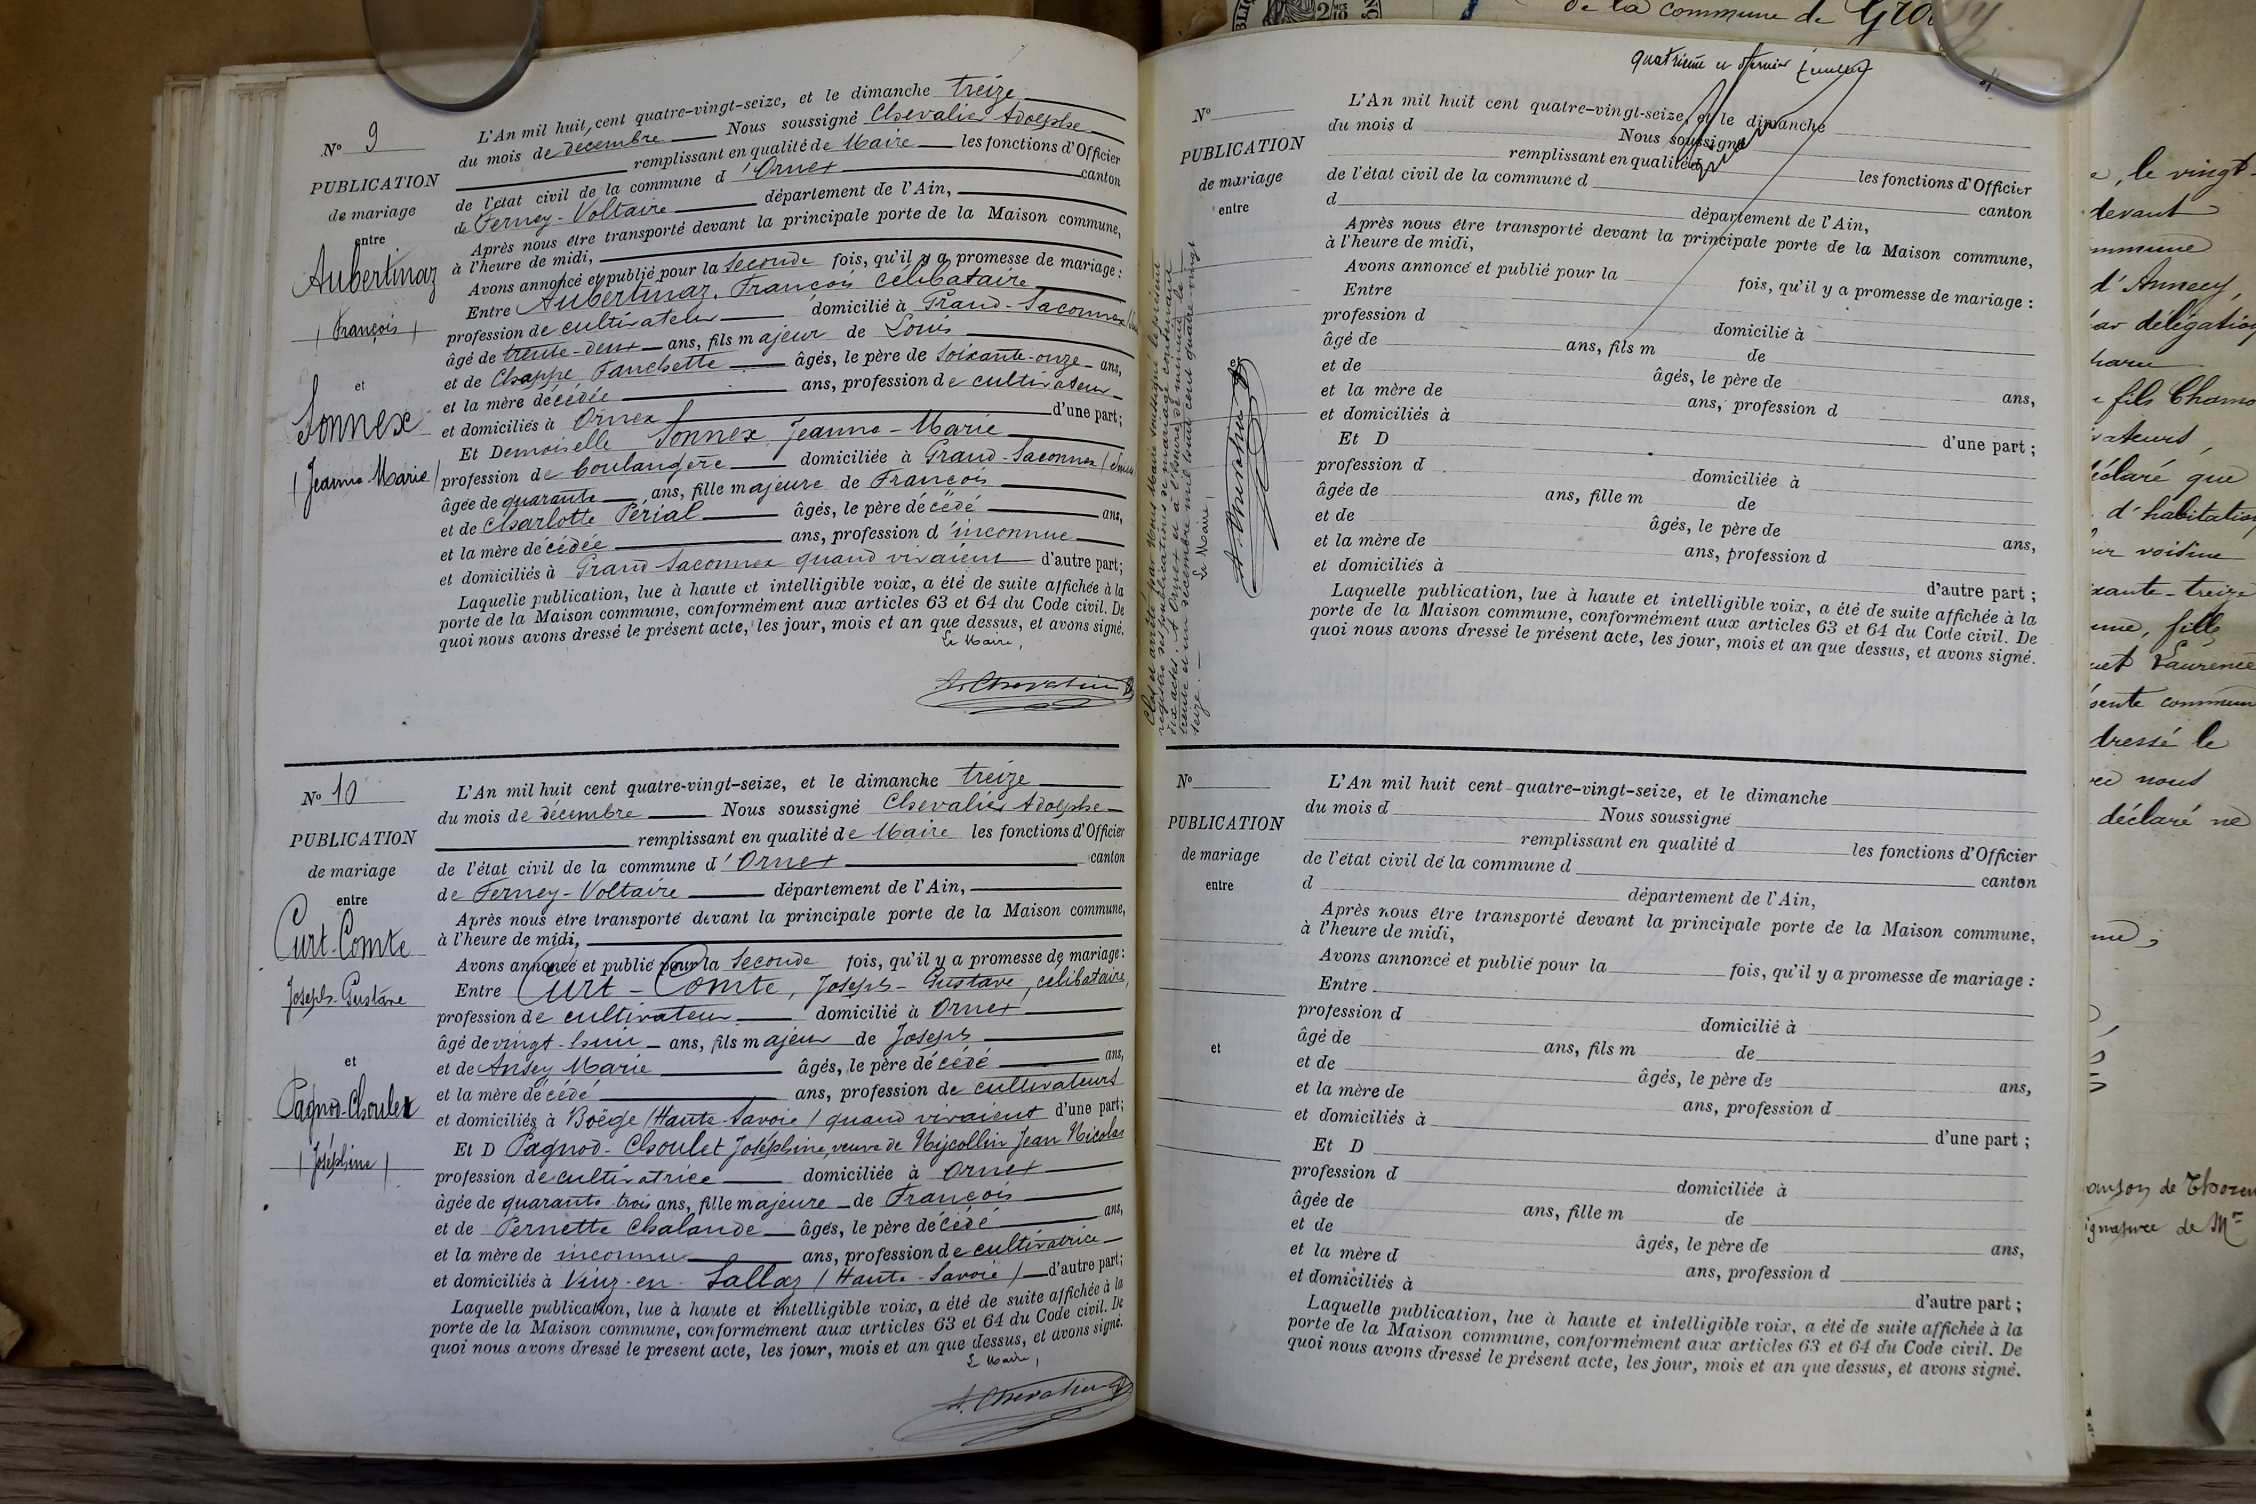 de la commune de
quatrième et dernier feuillet
N° 9
PUBLICATION
de mariage
entre
Aubertinaz
( François )
et
Sonnex
( Jeanne Marie )
L'An mil huit cent quatre-vingt-seize, et le dimanche treize
du mois de décembre Nous soussigné Chevalier Adolphe
remplissant en qualité de Maire les fonctions d'Officier
de l'état civil de la commune d'Ornex canton
de Ferney-Voltaire département de l'Ain,
Après nous être transporté devant la principale porte de la Maison commune,
à l'heure de midi,
Avons annoncé et publié pour la seconde fois, qu'il y a promesse de mariage :
Entre Aubertinaz, François célibataire
profession de cultivateur domicilié à Grand-Saconnex
âgé de trente-deux ans, fils majeur de Louis
et de Chappe Fanchette âgés, le père de soixante-onze ans,
et la mère décédée ans, profession de cultivateur
et domiciliés à Ornex d'une part ;
Et Demoiselle Sonnex Jeanne-Marie
profession de boulangère domiciliée à Grand-Saconnex
âgée de quarante ans, fille majeure de François
et de Charlotte Périal âgés, le père décédé ans,
et la mère décédée ans, profession d'inconnue
et domiciliés à Grand Saconnex quand vivaient d'autre part ;
Laquelle publication, lue à haute et intelligible voix, a été de suite affichée à la
porte de la Maison commune, conformément aux articles 63 et 64 du Code civil. De
quoi nous avons dressé le présent acte, les jour, mois et an que dessus, et avons signé.
Le Maire,
A. Chevalier
N° 10
PUBLICATION
de mariage
entre
Curt-Comte
Joseph-Gustave
et
Pagnod-Choulet
( Joséphine )
L'An mil huit cent quatre-vingt-seize, et le dimanche treize
du mois de décembre Nous soussigné Chevalier Adolphe
remplissant en qualité de Maire les fonctions d'Officier
de l'état civil de la commune d'Ornex canton
de Ferney-Voltaire département de l'Ain,
Après nous être transporté devant la principale porte de la Maison commune,
à l'heure de midi,
Avons annoncé et publié pour la seconde fois, qu'il y a promesse de mariage :
Entre Curt-Comte, Joseph-Gustave, célibataire,
profession de cultivateur domicilié à Ornex
âgé de vingt-huit ans, fils majeur de Joseph
et de Ansey Marie âgés, le père décédé ans,
et la mère décédé ans, profession de cultivateurs
et domiciliés à Boëge (Haute Savoie) quand vivaient d'une part ;
Et D Pagnod-Choulet Joséphine, veuve de Nycollin Jean Nicolas
profession de cultivatrice domiciliée à Ornex
âgée de quarante trois ans, fille majeure de François
et de Pernette Chalande âgés, le père décédé ans,
et la mère de inconnu ans, profession de cultivatrice
et domiciliés à Viuz-en-Sallaz (Haute-Savoie) d'autre part ;
Laquelle publication, lue à haute et intelligible voix, a été de suite affichée à la
porte de la Maison commune, conformément aux articles 63 et 64 du Code civil. De
quoi nous avons dressé le présent acte, les jour, mois et an que dessus, et avons signé.
Le Maire,
A. Chevalier
Clos et arrêté par Nous Maire soussigné le présent
registre de publications de mariage contenant
dix actes. A Ornex en à l'heure de minuit le
trente et un décembre mil huit cent quatre vingt
seize.
Le Maire,
A. Chevalier
N°
PUBLICATION
de mariage
entre
L'An mil huit cent quatre-vingt-seize, et le dimanche
du mois d Nous soussigné
remplissant en qualité d les fonctions d'Officier
de l'état civil de la commune d canton
d département de l'Ain,
Après nous être transporté devant la principale porte de la Maison commune,
à l'heure de midi,
Avons annoncé et publié pour la fois, qu'il y a promesse de mariage :
Entre
profession d domicilié à
âgé de ans, fils m de
et de âgés, le père de ans,
et la mère de ans, profession d
et domiciliés à d'une part ;
Et D
profession d domiciliée à
âgée de ans, fille m de
et de âgés, le père de ans,
et la mère de ans, profession d
et domiciliés à d'autre part ;
Laquelle publication, lue à haute et intelligible voix, a été de suite affichée à la
porte de la Maison commune, conformément aux articles 63 et 64 du Code civil. De
quoi nous avons dressé le présent acte, les jour, mois et an que dessus, et avons signé.
N°
PUBLICATION
de mariage
entre
et
L'An mil huit cent quatre-vingt-seize, et le dimanche
du mois d Nous soussigné
remplissant en qualité d les fonctions d'Officier
de l'état civil de la commune d canton
d département de l'Ain,
Après nous être transporté devant la principale porte de la Maison commune,
à l'heure de midi,
Avons annoncé et publié pour la fois, qu'il y a promesse de mariage :
Entre
profession d domicilié à
âgé de ans, fils m de
et de âgés, le père de ans,
et la mère de ans, profession d
et domiciliés à d'une part ;
Et D
profession d domiciliée à
âgée de ans, fille m de
et de âgés, le père de ans,
et la mère d ans, profession d
et domiciliés à d'autre part ;
Laquelle publication, lue à haute et intelligible voix, a été de suite affichée à la
porte de la Maison commune, conformément aux articles 63 et 64 du Code civil. De
quoi nous avons dressé le présent acte, les jour, mois et an que dessus, et avons signé.
le vingt-
devant
d'Annecy,
délégation
fils
que
d'habitation
voisine
-treize
fille
Laurence
dressé le
nous
déclaré ne
de
de Mr